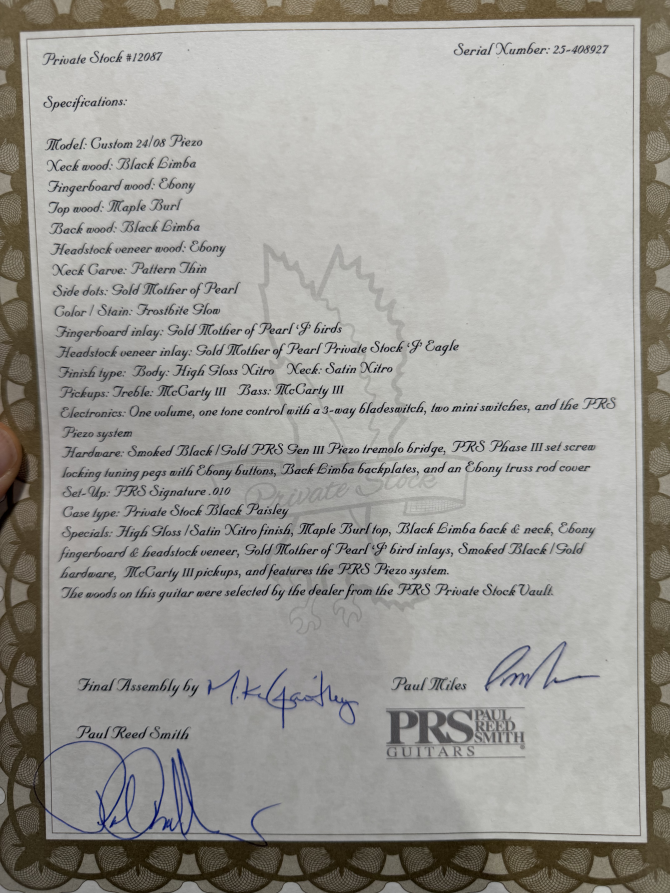 Private Stock #12087
Serial Number: 25-408927
Specifications:
Model: Custom 24/08 Piezo
Neck wood: Black Limba
Fingerboard wood: Ebony
Top wood: Maple Burl
Back wood: Black Limba
Headstock veneer wood: Ebony
Neck Carve: Pattern Thin
Side dots: Gold Mother of Pearl
Color / Stain: Frostbite Glow
Fingerboard inlay: Gold Mother of Pearl 'J' birds
Headstock veneer inlay: Gold Mother of Pearl Private Stock 'J' Eagle
Finish type: Body: High Gloss Nitro Neck: Satin Nitro
Pickups: Treble: McCarty III Bass: McCarty III
Electronics: One volume, one tone control with a 3-way bladeswitch, two mini switches, and the PRS
Piezo system
Hardware: Smoked Black/Gold PRS Gen III Piezo tremolo bridge, PRS Phase III set screw
locking tuning pegs with Ebony buttons, Back Limba backplates, and an Ebony truss rod cover
Set-Up: PRS Signature .010
Private Stock
Case type: Private Stock Black Paisley
Specials: High Gloss/Satin Nitro finish, Maple Burl top, Black Limba back & neck, Ebony
fingerboard & headstock veneer, Gold Mother of Pearl 'J' bird inlays, Smoked Black/Gold
hardware, McCarty III pickups, and features the PRS Piezo system.
The woods on this guitar were selected by the dealer from the PRS Private Stock Vault.
Final Assembly by
Paul Miles
Paul Reed Smith
PRS PAUL REED SMITH
GUITARS